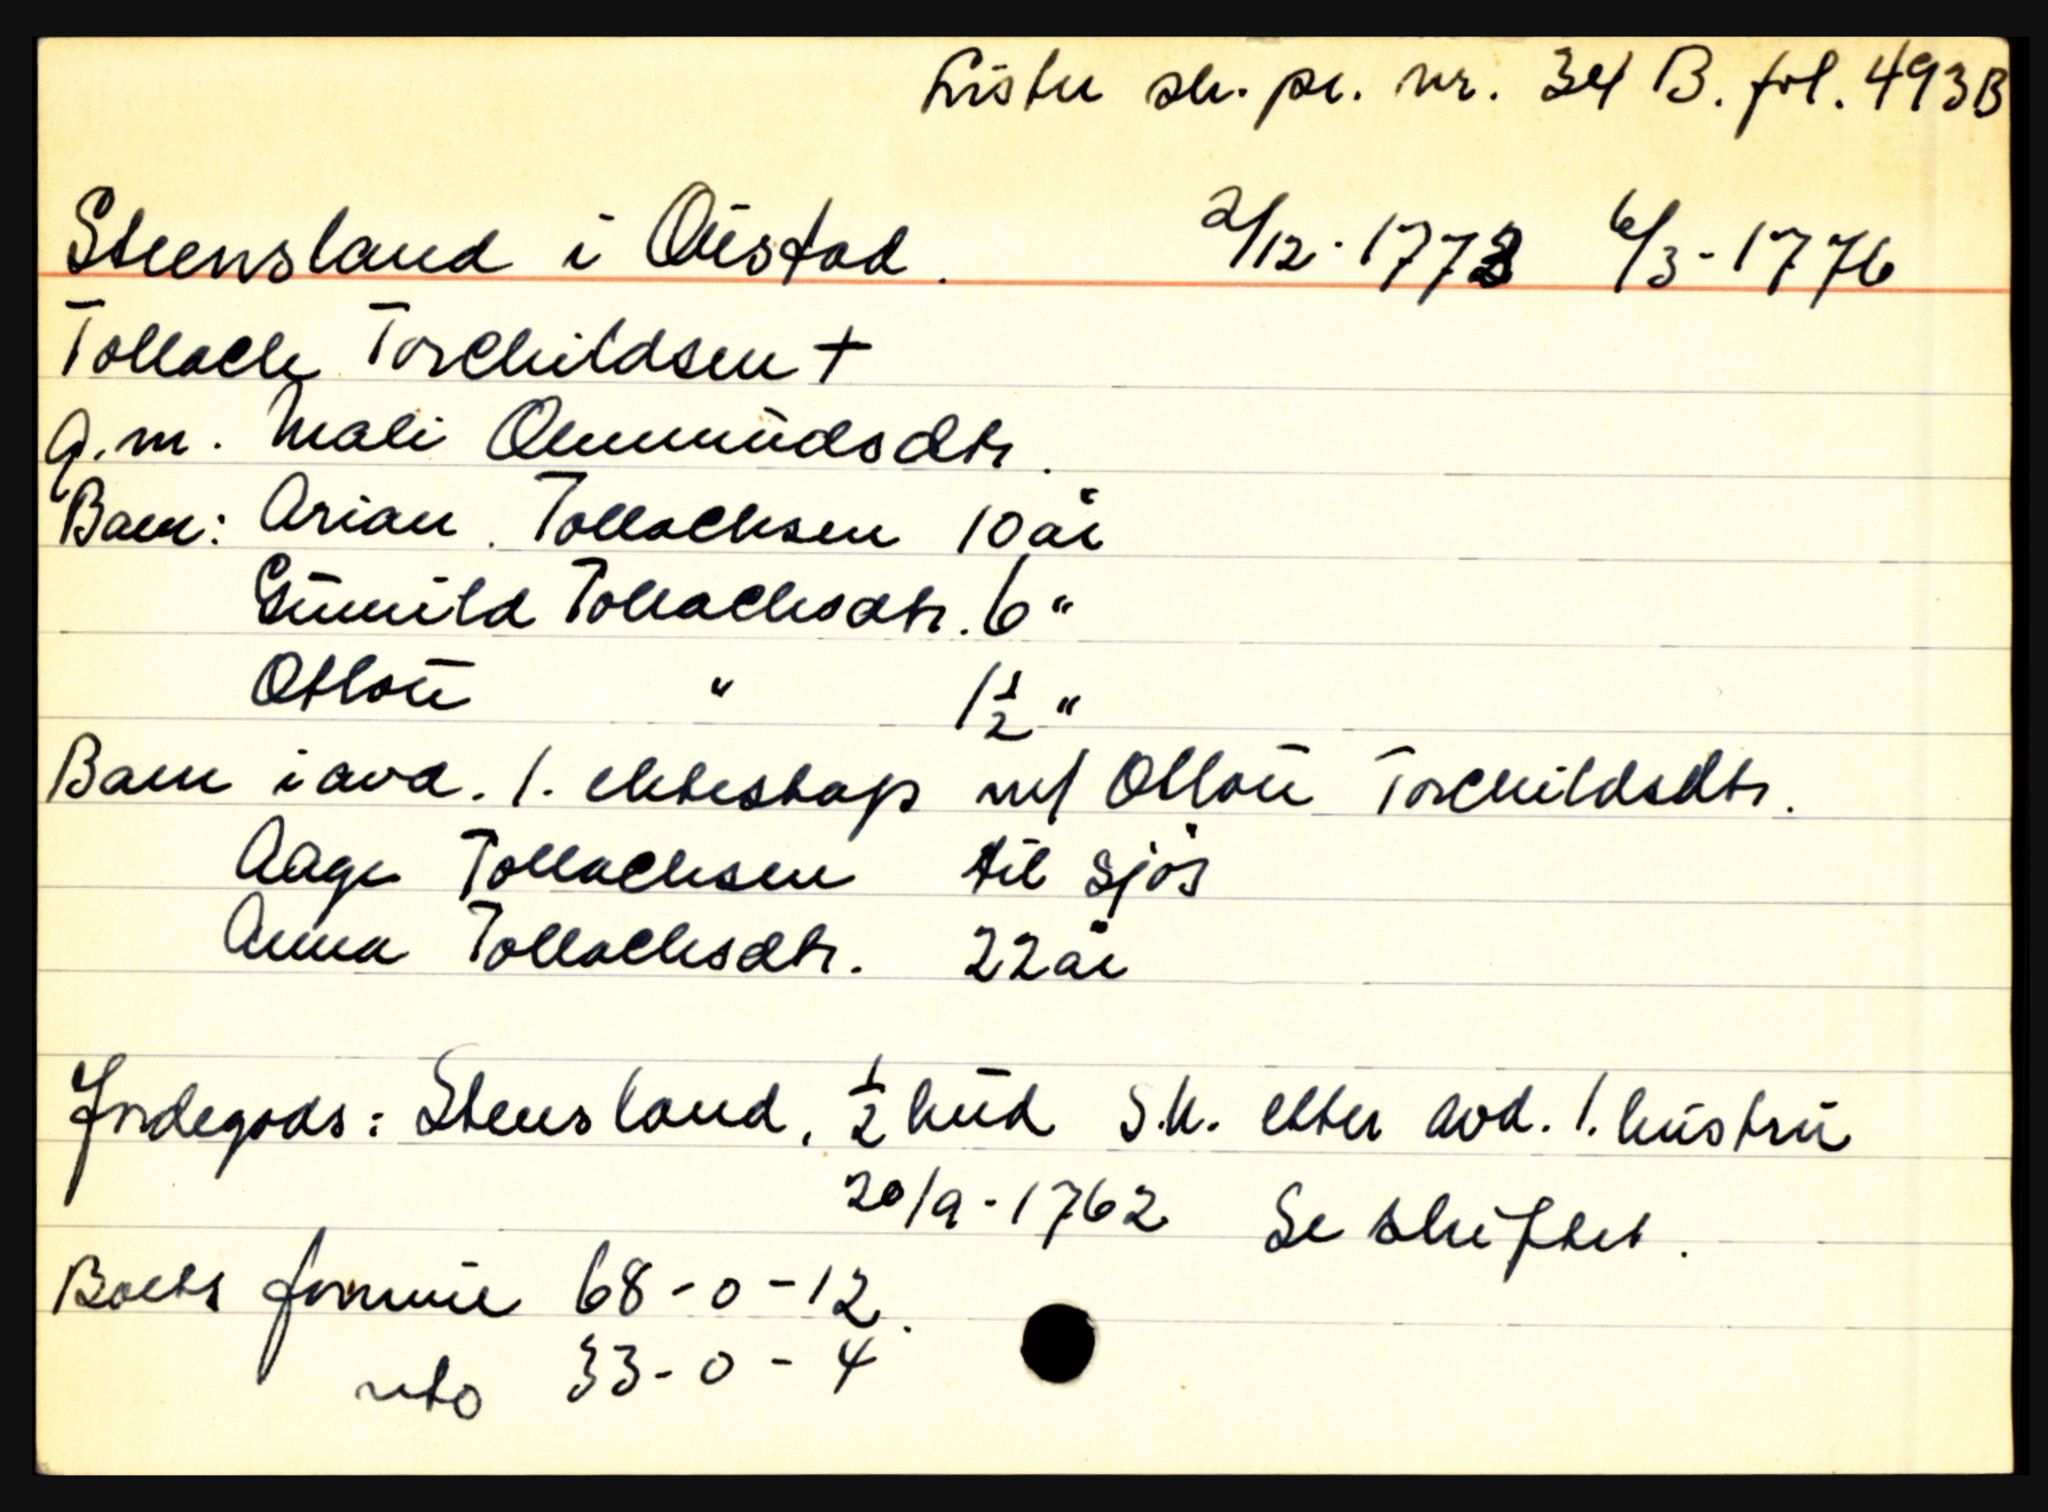 Lister sk. pr. nr. 34 B. fol. 493B
Steensland i Oustad. 2/12-1773 6/3-1776
Tollach Torchildsen +
g.m. Mali Ommundsdtr.
Barn: Arian Tollachsen 10 år
Gunnild Tollachsdtr. 6 "
Otlou " 1 1/2 "
Barn i avd. 1. ekteskap m/ Ollou Torchildsdtr.
Aage Tollachsen til sjøs
Anna Tollachsdtr. 22 år
Jordegods: Stensland, 1/2 hud S.k. etter avd. 1. hustru
20/9-1762 Se skiftet.
Boets formue 68-0-12.
nto 33-0-4